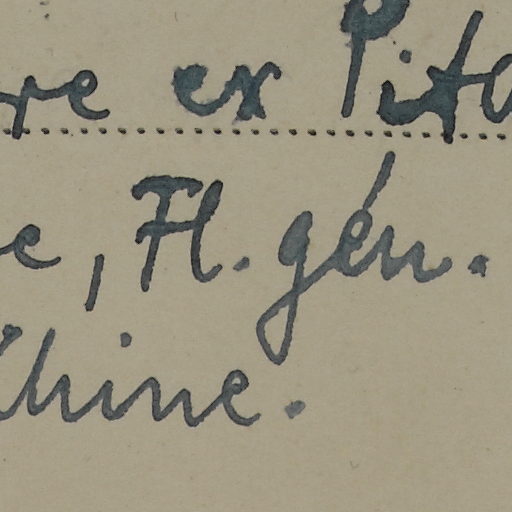 re ex Pita
e, Fl. gén.
Chine.